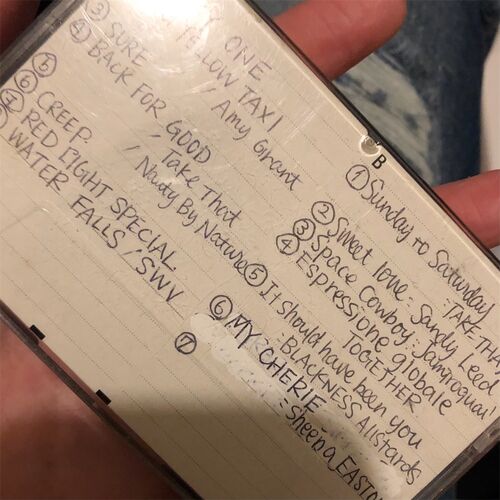 ONE
YELLOW TAXI
/ Amy Grant
③ SURE
④ BACK FOR GOOD
/ Take That
⑤ / Nauty By Nature
⑥ CREEP
⑦ RED LIGHT SPECIAL
WATER FALLS / SWV
B
① Sunday to Saturday
: TAKE THA
② Sweet love - Sandy
③ Space Cowboy : Jamiroquai
④ Espressione globale
TOGETHER
⑤ It should have been you
: BLACKNESS Allstards
⑥ MY CHERIE
: Sheena EASTO
⑦